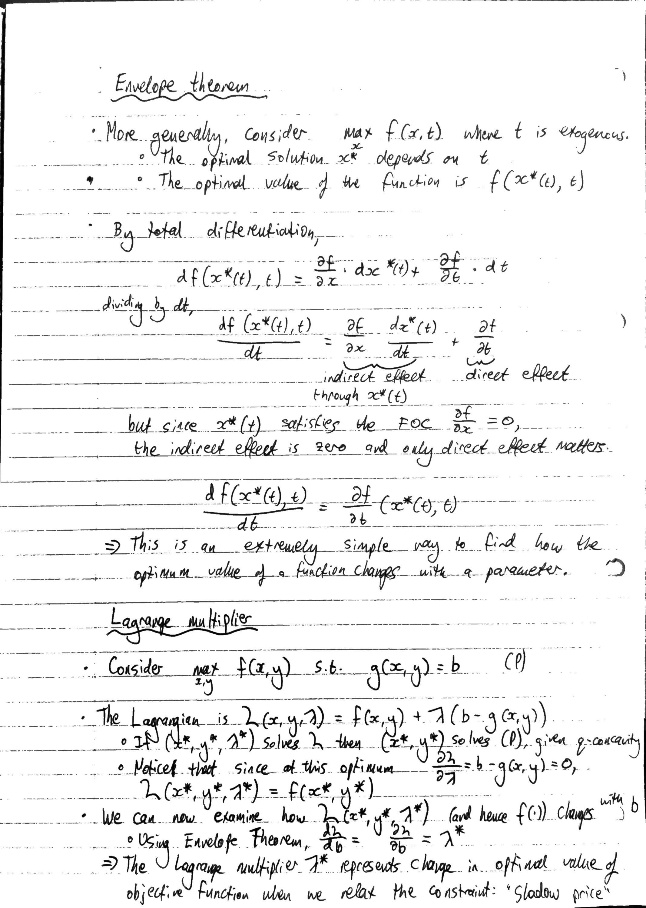 Envelope theorem
• More generally, consider max f(x,t) where t is exogenous.
x
◦ The optimal solution x* depends on t
◦ The optimal value of the function is f(x*(t), t)
• By total differentiation,
df(x*(t), t) = ∂f/∂x · dx*(t) + ∂f/∂t · dt
dividing by dt,
df(x*(t), t)/dt = ∂f/∂x dx*(t)/dt + ∂f/∂t
indirect effect direct effect
through x*(t)
but since x*(t) satisfies the FOC ∂f/∂x = 0,
the indirect effect is zero and only direct effect matters.
df(x*(t), t)/dt = ∂f/∂t (x*(t), t)
⇒ This is an extremely simple way to find how the
optimum value of a function changes with a parameter.
Lagrange multiplier
• Consider max f(x,y) s.t. g(x,y) = b (P)
x,y
• The Lagrangian is L(x, y, λ) = f(x,y) + λ(b - g(x,y))
◦ If (x*, y*, λ*) solves L then (x*, y*) solves (P), given q-concavity
◦ Notice that since at this optimum ∂L/∂λ = b - g(x,y) = 0,
L(x*, y*, λ*) = f(x*, y*)
• We can now examine how L(x*, y*, λ*) (and hence f(·)) changes with b
◦ Using Envelope Theorem, dL/db = ∂L/∂b = λ*
⇒ The Lagrange multiplier λ* represents change in optimal value of
objective function when we relax the constraint: "Shadow price"